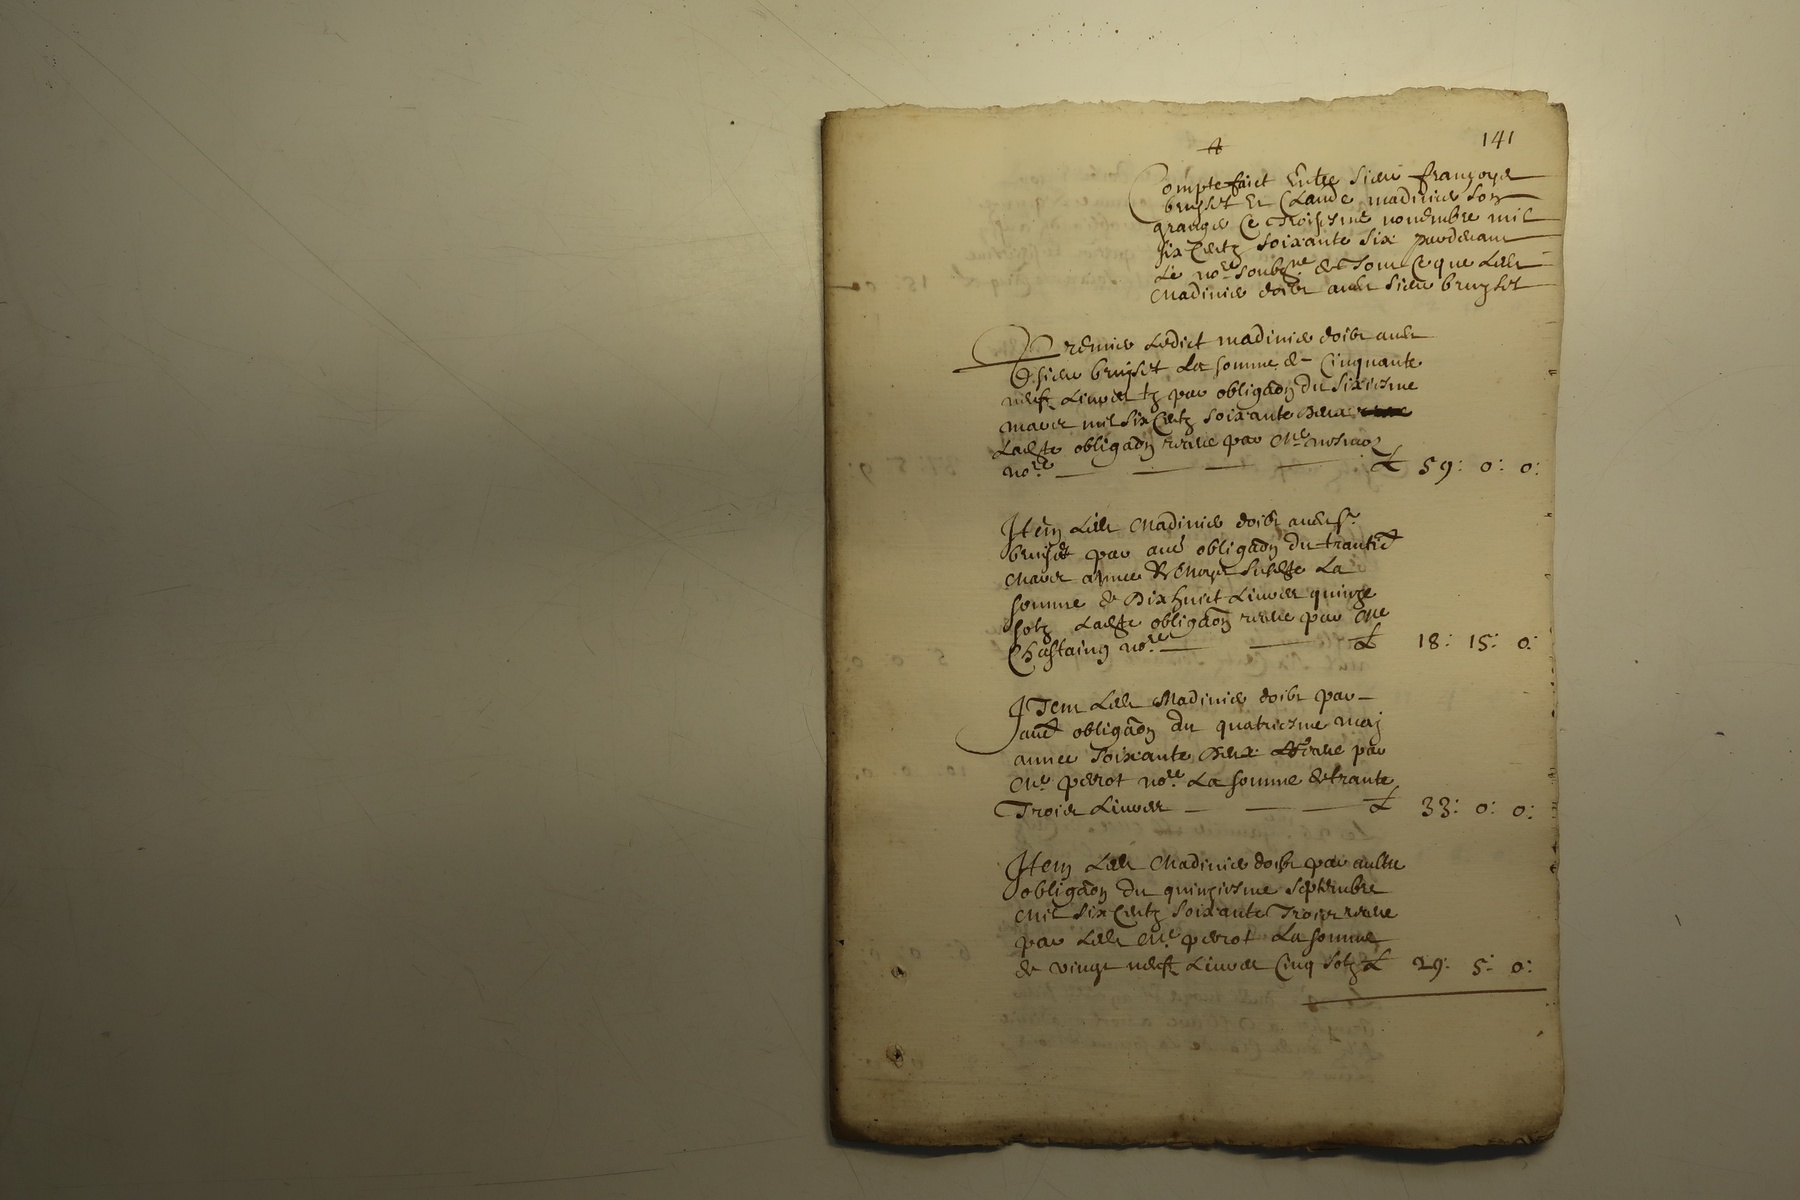 141
Compte faict Entre Sieur françoys
bruyset Et Claude madinier son
granger Ce Troisiesme novembre mil
six Centz soixante six pardevant
Le no.re soubz.ne de Tout Ce que Ledt
Madinier doibt audt Sieur bruyset
Premier Ledict madinier doibt audt
sieur bruyset La somme de Cinquante
neufz Livres tz par obligaon du sixiesme
mars mil six Centz soixante deux
Ladste obligaon receue par Me
no.re £ 59: 0: 0:
Item Ledt Madinier doibt audt Sr.
bruyset par aud obligaon du trantie
Mars annee susdte La
somme de Dix huict Livres quinze
solz Ladste obligaon receue par Me
Chastaing no.re £ 18: 15: 0:
ITem Ledt Madinier doibt par
aue obligaon du quatriesme maj
annee soixante Deux receue par
Me. perrot no.re La somme de trante
Trois Livres £ 33: 0: 0:
Item Ledt Madinier doibt par aultre
obligaon du quinziesme septembre
Mil six Centz soixante Trois receue
par Ledt Me. perrot La somme
de vingt neufz Livres Cinq solz £ 29: 5: 0: